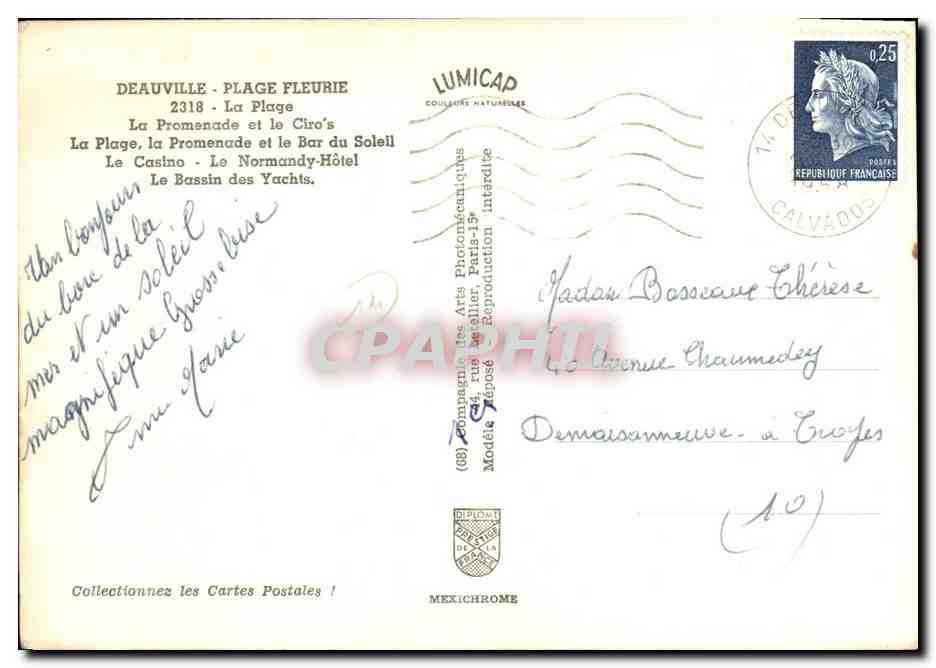 DEAUVILLE - PLAGE FLEURIE
2318 - La Plage
La Promenade et le Ciro's
La Plage, la Promenade et le Bar du Soleil
Le Casino - Le Normandy-Hôtel
Le Bassin des Yachts.
bonjour
du bore de la
mer et un soleil
magnifique Grosse bise
Marie
Collectionnez les Cartes Postales !
LUMICAP
COULEURS NATURELLES
(68) Compagnie des Arts Photomécaniques
44, rue Letellier, Paris-15e
Modèle déposé Reproduction interdite
DIPLOME
PRESTIGE
DE LA
FRANCE
MEXICHROME
0,25
POSTES
REPUBLIQUE FRANÇAISE
14 DE
CALVADOS
Madam Bosseaux Thérèse
40 Avenue Chaumedey
Demaisonneuve - à Troyes
(10)
CPAPHIL